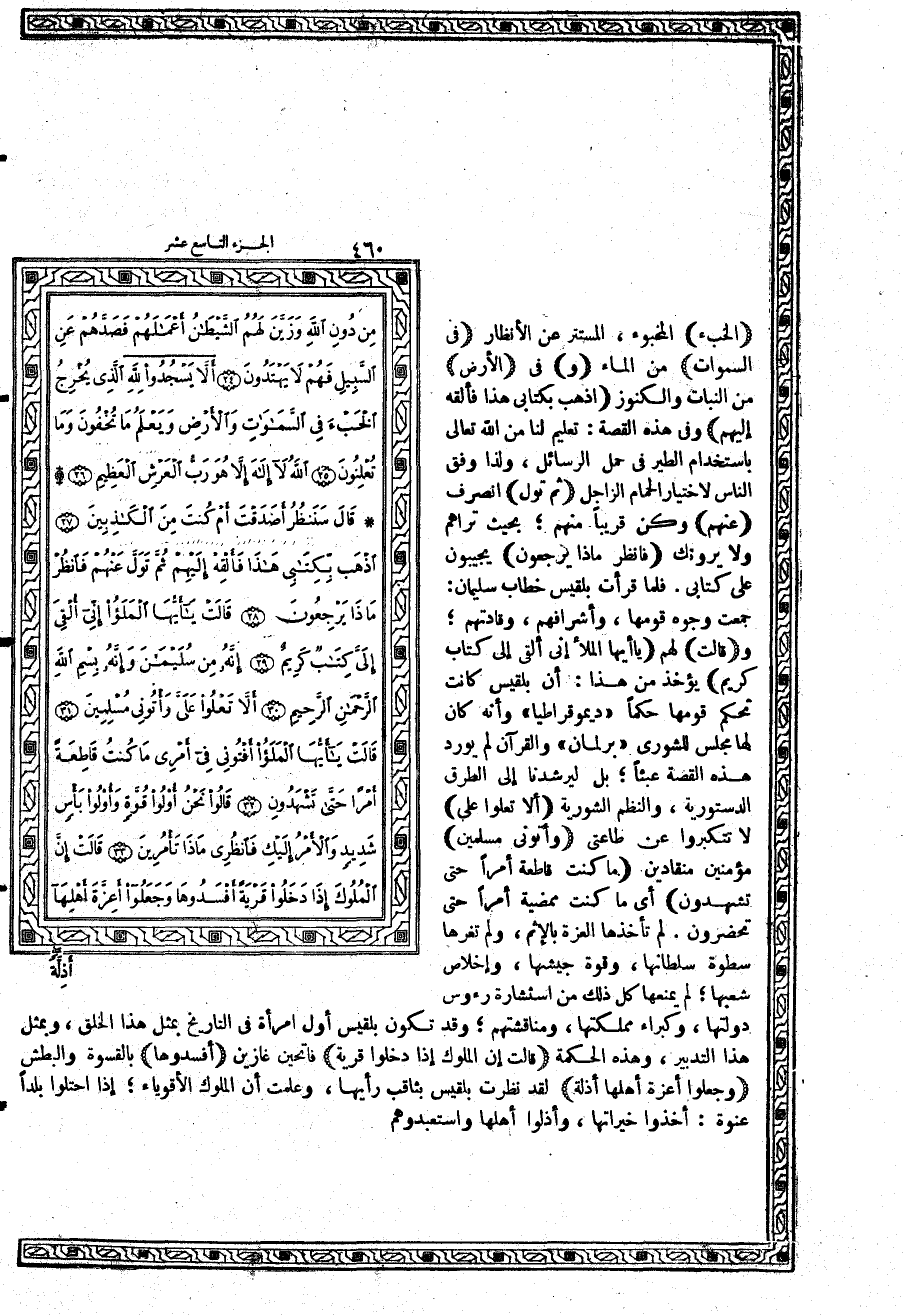 ٤٦٠ الجزء التاسع عشر
مِن دُونِ ٱللَّهِ وَزَيَّنَ لَهُمُ ٱلشَّيْطَٰنُ أَعْمَٰلَهُمْ فَصَدَّهُمْ عَنِ
ٱلسَّبِيلِ فَهُمْ لَا يَهْتَدُونَ ٢٤ أَلَّا يَسْجُدُوا۟ لِلَّهِ ٱلَّذِى يُخْرِجُ
ٱلْخَبْءَ فِى ٱلسَّمَٰوَٰتِ وَٱلْأَرْضِ وَيَعْلَمُ مَا تُخْفُونَ وَمَا
تُعْلِنُونَ ٢٥ ٱللَّهُ لَآ إِلَٰهَ إِلَّا هُوَ رَبُّ ٱلْعَرْشِ ٱلْعَظِيمِ ٢٦ *
* قَالَ سَنَنظُرُ أَصَدَقْتَ أَمْ كُنتَ مِنَ ٱلْكَٰذِبِينَ ٢٧
ٱذْهَب بِّكِتَٰبِى هَٰذَا فَأَلْقِهْ إِلَيْهِمْ ثُمَّ تَوَلَّ عَنْهُمْ فَٱنظُرْ
مَاذَا يَرْجِعُونَ ٢٨ قَالَتْ يَٰٓأَيُّهَا ٱلْمَلَؤُا۟ إِنِّىٓ أُلْقِىَ
إِلَىَّ كِتَٰبٌ كَرِيمٌ ٢٩ إِنَّهُۥ مِن سُلَيْمَٰنَ وَإِنَّهُۥ بِسْمِ ٱللَّهِ
ٱلرَّحْمَٰنِ ٱلرَّحِيمِ ٣٠ أَلَّا تَعْلُوا۟ عَلَىَّ وَأْتُونِى مُسْلِمِينَ ٣١
قَالَتْ يَٰٓأَيُّهَا ٱلْمَلَؤُا۟ أَفْتُونِى فِىٓ أَمْرِى مَا كُنتُ قَاطِعَةً
أَمْرًا حَتَّىٰ تَشْهَدُونِ ٣٢ قَالُوا۟ نَحْنُ أُو۟لُوا۟ قُوَّةٍ وَأُو۟لُوا۟ بَأْسٍ
شَدِيدٍ وَٱلْأَمْرُ إِلَيْكِ فَٱنظُرِى مَاذَا تَأْمُرِينَ ٣٣ قَالَتْ إِنَّ
ٱلْمُلُوكَ إِذَا دَخَلُوا۟ قَرْيَةً أَفْسَدُوهَا وَجَعَلُوٓا۟ أَعِزَّةَ أَهْلِهَآ
أَذِلَّةً
(الخبء) المخبوء ، المستتر عن الأنظار (فى
السموات) من الماء (و) فى (الأرض)
من النبات والكنوز (اذهب بكتابى هذا فألقه
إليهم) وفى هذه القصة : تعليم لنا من الله تعالى
باستخدام الطير فى حمل الرسائل ، ولذا وفق
الناس لاختيار الحمام الزاجل (ثم تول) انصرف
(عنهم) وكن قريباً منهم ؛ بحيث تراهم
ولا يرونك (فانظر ماذا يرجعون) يجيبون
على كتابى . فلما قرأت بلقيس خطاب سليمان:
جمعت وجوه قومها ، وأشرافهم ، وقادتهم ؛
و(قالت) لهم (ياأيها الملأ إنى ألقى إلى كتاب
كريم) يؤخذ من هذا : أن بلقيس كانت
تحكم قومها حكماً «ديموقراطيا» وأنه كان
لها مجلس للشورى «برلمان» والقرآن لم يورد
هذه القصة عبثاً ؛ بل ليرشدنا إلى الطرق
الدستورية ، والنظم الشورية (ألا تعلوا على)
لا تتكبروا عن طاعتى (وأتونى مسلمين)
مؤمنين منقادين (ما كنت قاطعة أمراً حتى
تشهدون) أى ما كنت ممضية أمراً حتى
تحضرون . لم تأخذها العزة بالإثم ، ولم تغرها
سطوة سلطانها ، وقوة جيشها ، وإخلاص
شعبها ؛ لم يمنعها كل ذلك من استشارة رءوس
دولتها ، وكبراء مملكتها ، ومناقشتهم ؛ وقد تكون بلقيس أول امرأة فى التاريخ بمثل هذا الخلق ، وبمثل
هذا التدبير ، وهذه الحكمة (قالت إن الملوك إذا دخلوا قرية) فاتحين غازين (أفسدوها) بالقسوة والبطش
(وجعلوا أعزة أهلها أذلة) لقد نظرت بلقيس بثاقب رأيها ، وعلمت أن الملوك الأقوياء ؛ إذا احتلوا بلداً
عنوة : أخذوا خيراتها ، وأذلوا أهلها واستعبدوهم